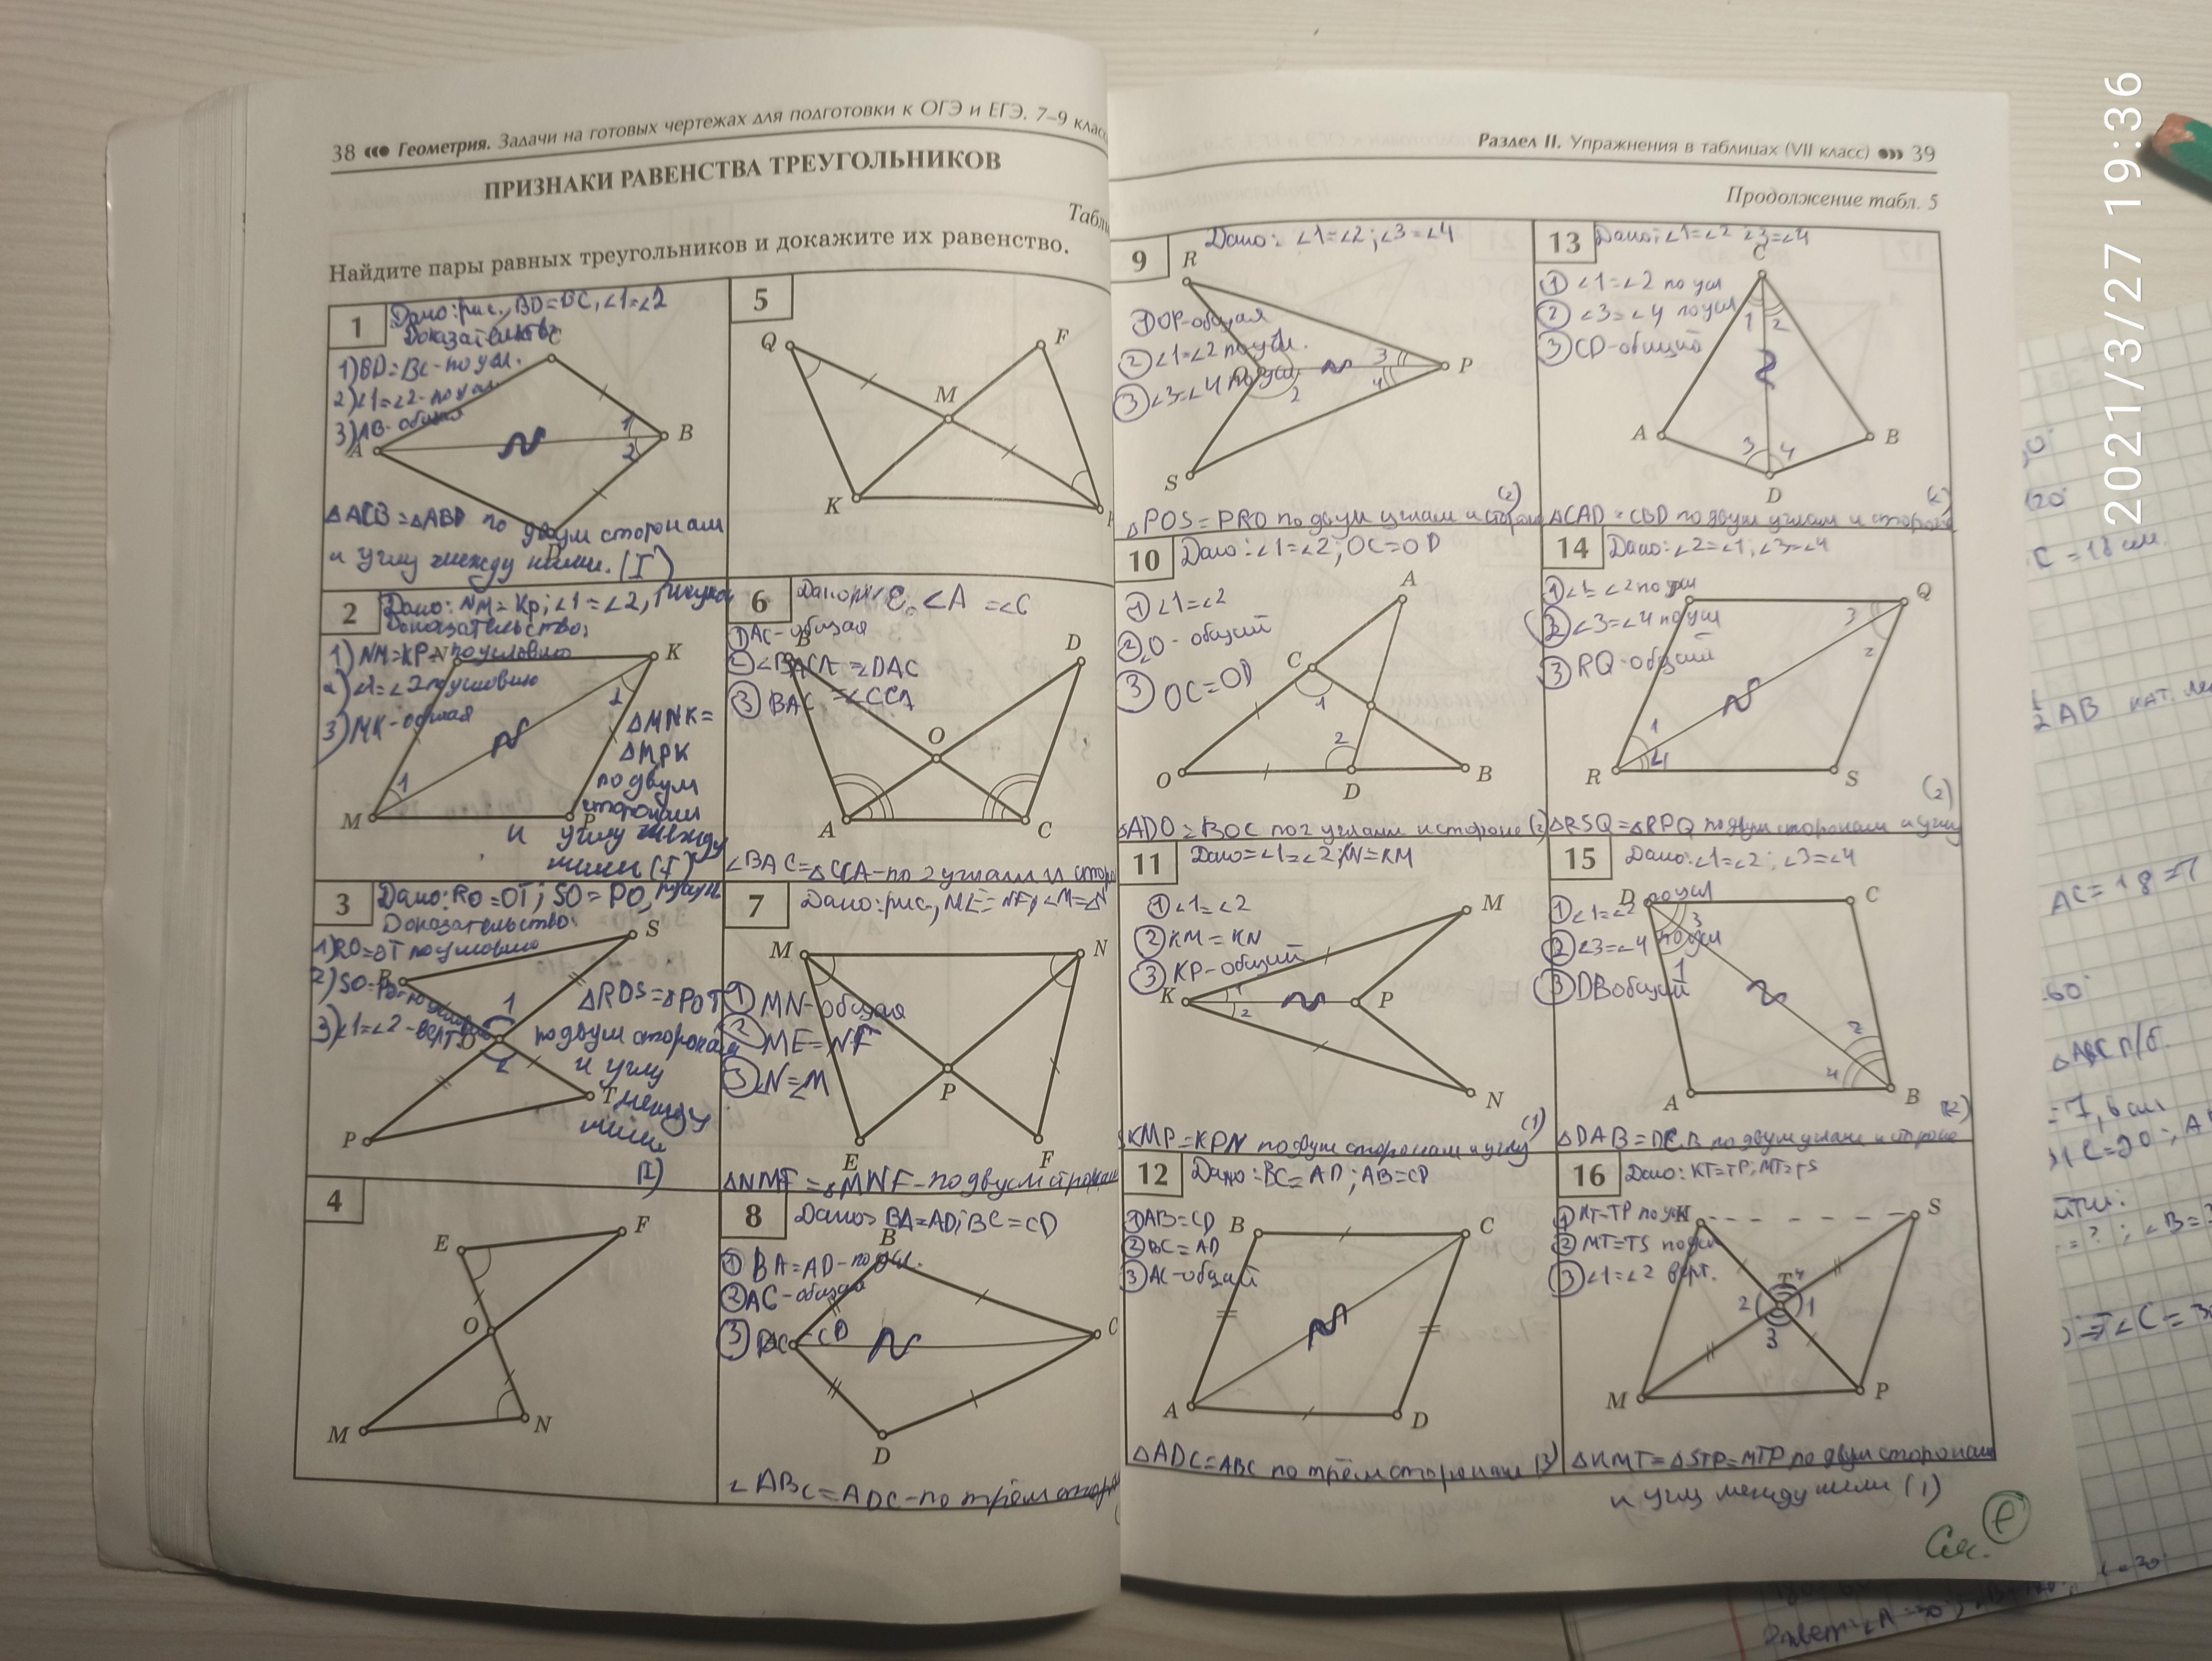 38 Геометрия. Задачи на готовых чертежах для подготовки к ОГЭ и ЕГЭ. 7–9 класс
ПРИЗНАКИ РАВЕНСТВА ТРЕУГОЛЬНИКОВ
Табл
Найдите пары равных треугольников и докажите их равенство.
1
Дано: рис., BD=BC, ∠1=∠2
Доказательство
1) BD=BC-по усл.
2) ∠1=∠2-по усл
3) AB-общая
C
A
B
1
2
D
△ACB=△ABD по двум сторонам
и углу между ними. (I)
2
Дано: NM=Kp; ∠1=∠2,
Доказательство:
1) NM=KP-по условию
2) ∠1=∠2 по условию
3) MK-общая
N
K
M
P
1
2
△MNK=
△MPK
по двум
сторонам
и углу между
ними (I)
3
Дано: RO=OT; SO=PO,
Доказательство:
1) RO=OT по условию
3) ∠1=∠2-верт
R
S
O
P
T
1
2
△ROS=△POT
по двум сторонам
и углу
между
ними
(I)
4
E
F
O
M
N
5
Q
F
M
K
6
∠A =∠C
① AC-общая
=∠DAC
③ BAC =∠CCA
B
D
O
A
C
∠BAC=△CCA-по 2 углам и сторо
7
Дано: рис., ME=NF, ∠M=∠N
① MN-общая
② ME=NF
③ ∠N=∠M
M
N
P
E
F
△NMF=△MNF-по двум сторонам
8
Дано> BA=AD; BC=CD
① BA=AD-по усл.
② AC-общая
B
C
D
∠ABC=ADC-по трём сторо
Раздел II. Упражнения в таблицах (VII класс) 39
Продолжение табл. 5
9
Дано: ∠1=∠2; ∠3=∠4
① OP-общая
② ∠1=∠2 по усл.
③ ∠3=∠4 по усл
R
P
S
2
3
4
(2)
△POS=PRO по двум углам и стороне
10
Дано: ∠1=∠2; OC=OD
① ∠1=∠2
② O-общий
③ OC=OD
A
C
O
D
B
1
2
△ADO=BOC по 2 углам и стороне (2)
11
Дано=∠1=∠2; KN=KM
① ∠1=∠2
② KM=KN
③ KP-общий
M
K
P
N
1
2
(1)
KMP=KPN по двум сторонам и углу
12
Дано: BC=AD; AB=CD
① AB=CD
② BC=AD
③ AC-общий
B
C
A
D
△ADC=ABC по трём сторонам (3)
13
Дано: ∠1=∠2 ∠3=∠4
① ∠1=∠2 по усл
② ∠3=∠4 по усл
③ CD-общий
C
A
B
D
1
2
3
4
(2)
△CAD=CBD по двум углам и стороне
14
Дано: ∠2=∠1; ∠3=∠4
① ∠1=∠2 по усл
② ∠3=∠4 по усл
③ RQ-общий
Q
R
S
1
2
3
4
(2)
△RSQ=△RPQ по двум сторонам и углу
15
Дано: ∠1=∠2; ∠3=∠4
① ∠1=∠2 по усл
② ∠3=∠4 по усл
③ DB общий
D
C
A
B
1
2
3
4
(2)
△DAB=DCB по двум углам и стороне
16
Дано: KT=TP; MT=TS
① KT=TP по усл
② MT=TS по усл
③ ∠1=∠2 верт.
K
S
T
M
P
1
2
3
4
△KMT=△STP=MTP по двум сторонам
и углу между ними (1)
См.
2021/3/27 19:36
C=18 см.
AB
AC=18=7
60°
△ABC п/б.